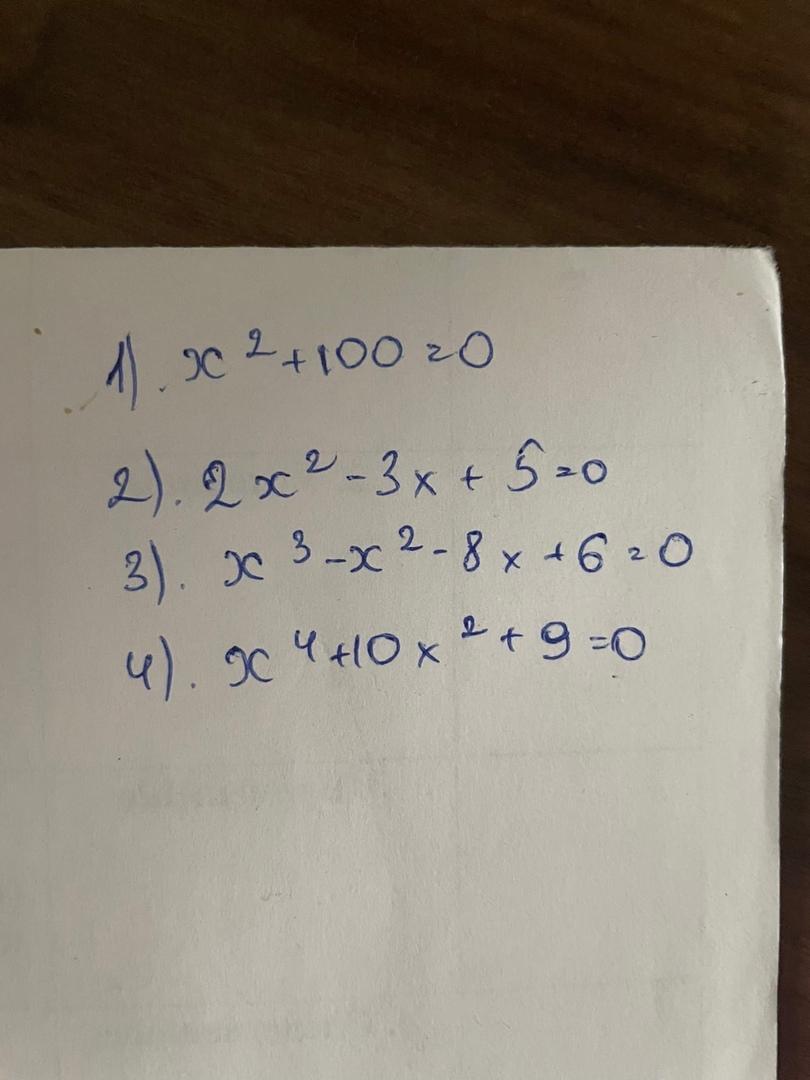 1). x² + 100 = 0
2). 2x² - 3x + 5 = 0
3). x³ - x² - 8x + 6 = 0
4). x⁴ + 10x² + 9 = 0